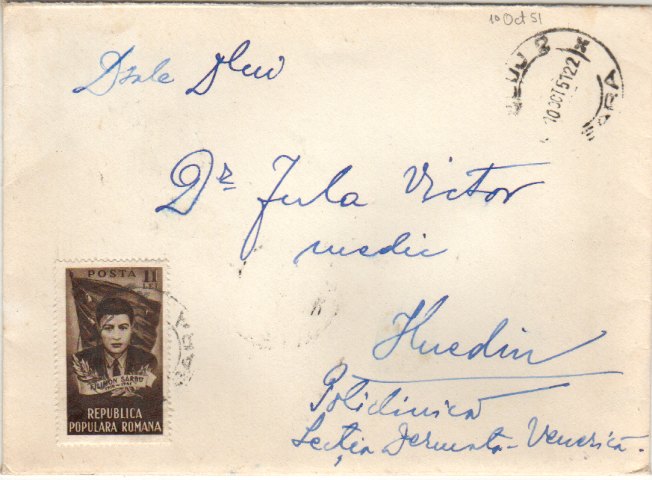 10 Oct 51
CLUJ 2 ✕
10 OCT 51 22
GARA
Dsale Dlui
Dr. Jula Victor
medic
Huedin
Policlinica
Secția Dermato-Venerică.
POSTA 11 LEI
FILIMON SARBU
REPUBLICA
POPULARA ROMANA